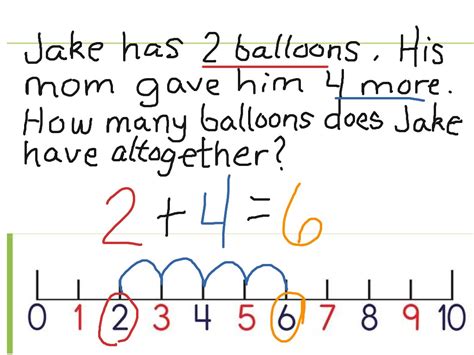 Jake has 2 balloons. His
mom gave him 4 more.
How many balloons does Jake
have altogether?
2 + 4 = 6
0 1 2 3 4 5 6 7 8 9 10